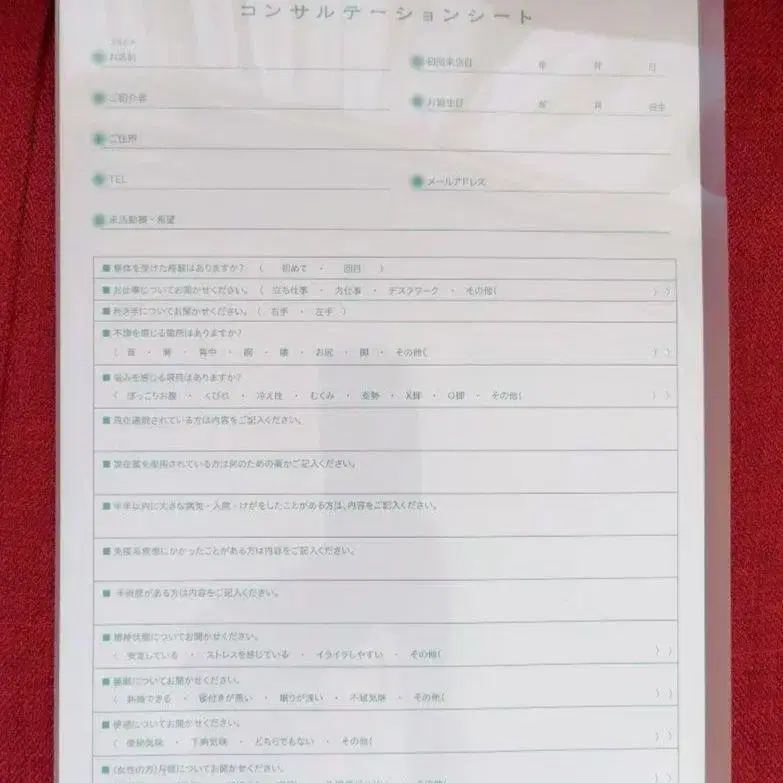 コンサルテーションシート
お名前
初回来店日 年 月 日
ご紹介者
お誕生日 年 月 日生
ご住所
TEL
メールアドレス
来店動機・希望
■ 整体を受けた経験はありますか? ( 初めて ・ 回目 )
■ お仕事についてお聞かせください。( 立ち仕事 ・ 力仕事 ・ デスクワーク ・ その他( ) )
■ 利き手についてお聞かせください。( 右手 ・ 左手 )
■ 不調を感じる箇所はありますか?
( 首 ・ 肩 ・ 背中 ・ 腕 ・ 腰 ・ お尻 ・ 脚 ・ その他( ) )
■ 悩みを感じる項目はありますか?
( ぽっこりお腹 ・ くびれ ・ 冷え性 ・ むくみ ・ 姿勢 ・ X脚 ・ O脚 ・ その他( ) )
■ 現在通院されている方は内容をご記入ください。
■ 現在薬を服用されている方は何のための薬かご記入ください。
■ 半年以内に大きな病気・入院・けがをしたことがある方は、内容をご記入ください。
■ 免疫系疾患にかかったことがある方は内容をご記入ください。
■ 手術歴がある方は内容をご記入ください。
■ 精神状態についてお聞かせください。
( 安定している ・ ストレスを感じている ・ イライラしやすい ・ その他( ) )
■ 睡眠についてお聞かせください。
( 熟睡できる ・ 寝付きが悪い ・ 眠りが浅い ・ 不眠気味 ・ その他( ) )
■ 便通についてお聞かせください。
( 便秘気味 ・ 下痢気味 ・ どちらでもない ・ その他( ) )
■ (女性の方)月経についてお聞かせください。